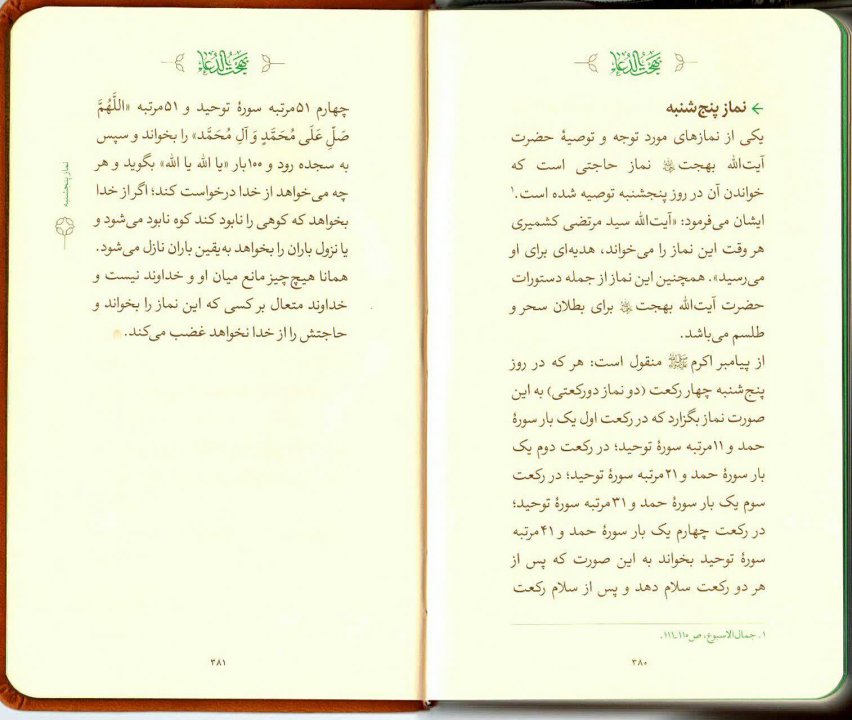 بهجت الدعاء
← نماز پنج‌شنبه
یکی از نمازهای مورد توجه و توصیهٔ حضرت
آیت‌الله بهجت نماز حاجتی است که
خواندن آن در روز پنجشنبه توصیه شده است.۱
ایشان می‌فرمود: «آیت‌الله سید مرتضی کشمیری
هر وقت این نماز را می‌خواند، هدیه‌ای برای او
می‌رسید». همچنین این نماز از جمله دستورات
حضرت آیت‌الله بهجت برای بطلان سحر و
طلسم می‌باشد.
از پیامبر اکرم ﷺ منقول است: هر که در روز
پنج‌شنبه چهار رکعت (دو نماز دورکعتی) به این
صورت نماز بگزارد که در رکعت اول یک بار سورهٔ
حمد و ۱۱مرتبه سورهٔ توحید؛ در رکعت دوم یک
بار سورهٔ حمد و ۲۱مرتبه سورهٔ توحید؛ در رکعت
سوم یک بار سورهٔ حمد و ۳۱مرتبه سورهٔ توحید؛
در رکعت چهارم یک بار سورهٔ حمد و ۴۱مرتبه
سورهٔ توحید بخواند به این صورت که پس از
هر دو رکعت سلام دهد و پس از سلام رکعت
۱. جمال‌الاسبوع، ص۱۱۰ـ۱۱۱.
۳۸۰
بهجت الدعاء
چهارم ۵۱مرتبه سورهٔ توحید و ۵۱مرتبه «اللَّهُمَّ
صَلِّ عَلَی مُحَمَّدٍ وَ آلِ مُحَمَّد» را بخواند و سپس
به سجده رود و ۱۰۰بار «یا الله یا الله» بگوید و هر
چه می‌خواهد از خدا درخواست کند؛ اگر از خدا
بخواهد که کوهی را نابود کند کوه نابود می‌شود و
یا نزول باران را بخواهد به‌یقین باران نازل می‌شود.
همانا هیچ‌چیز مانع میان او و خداوند نیست و
خداوند متعال بر کسی که این نماز را بخواند و
حاجتش را از خدا نخواهد غضب می‌کند.
نماز پنجشنبه
۳۸۱